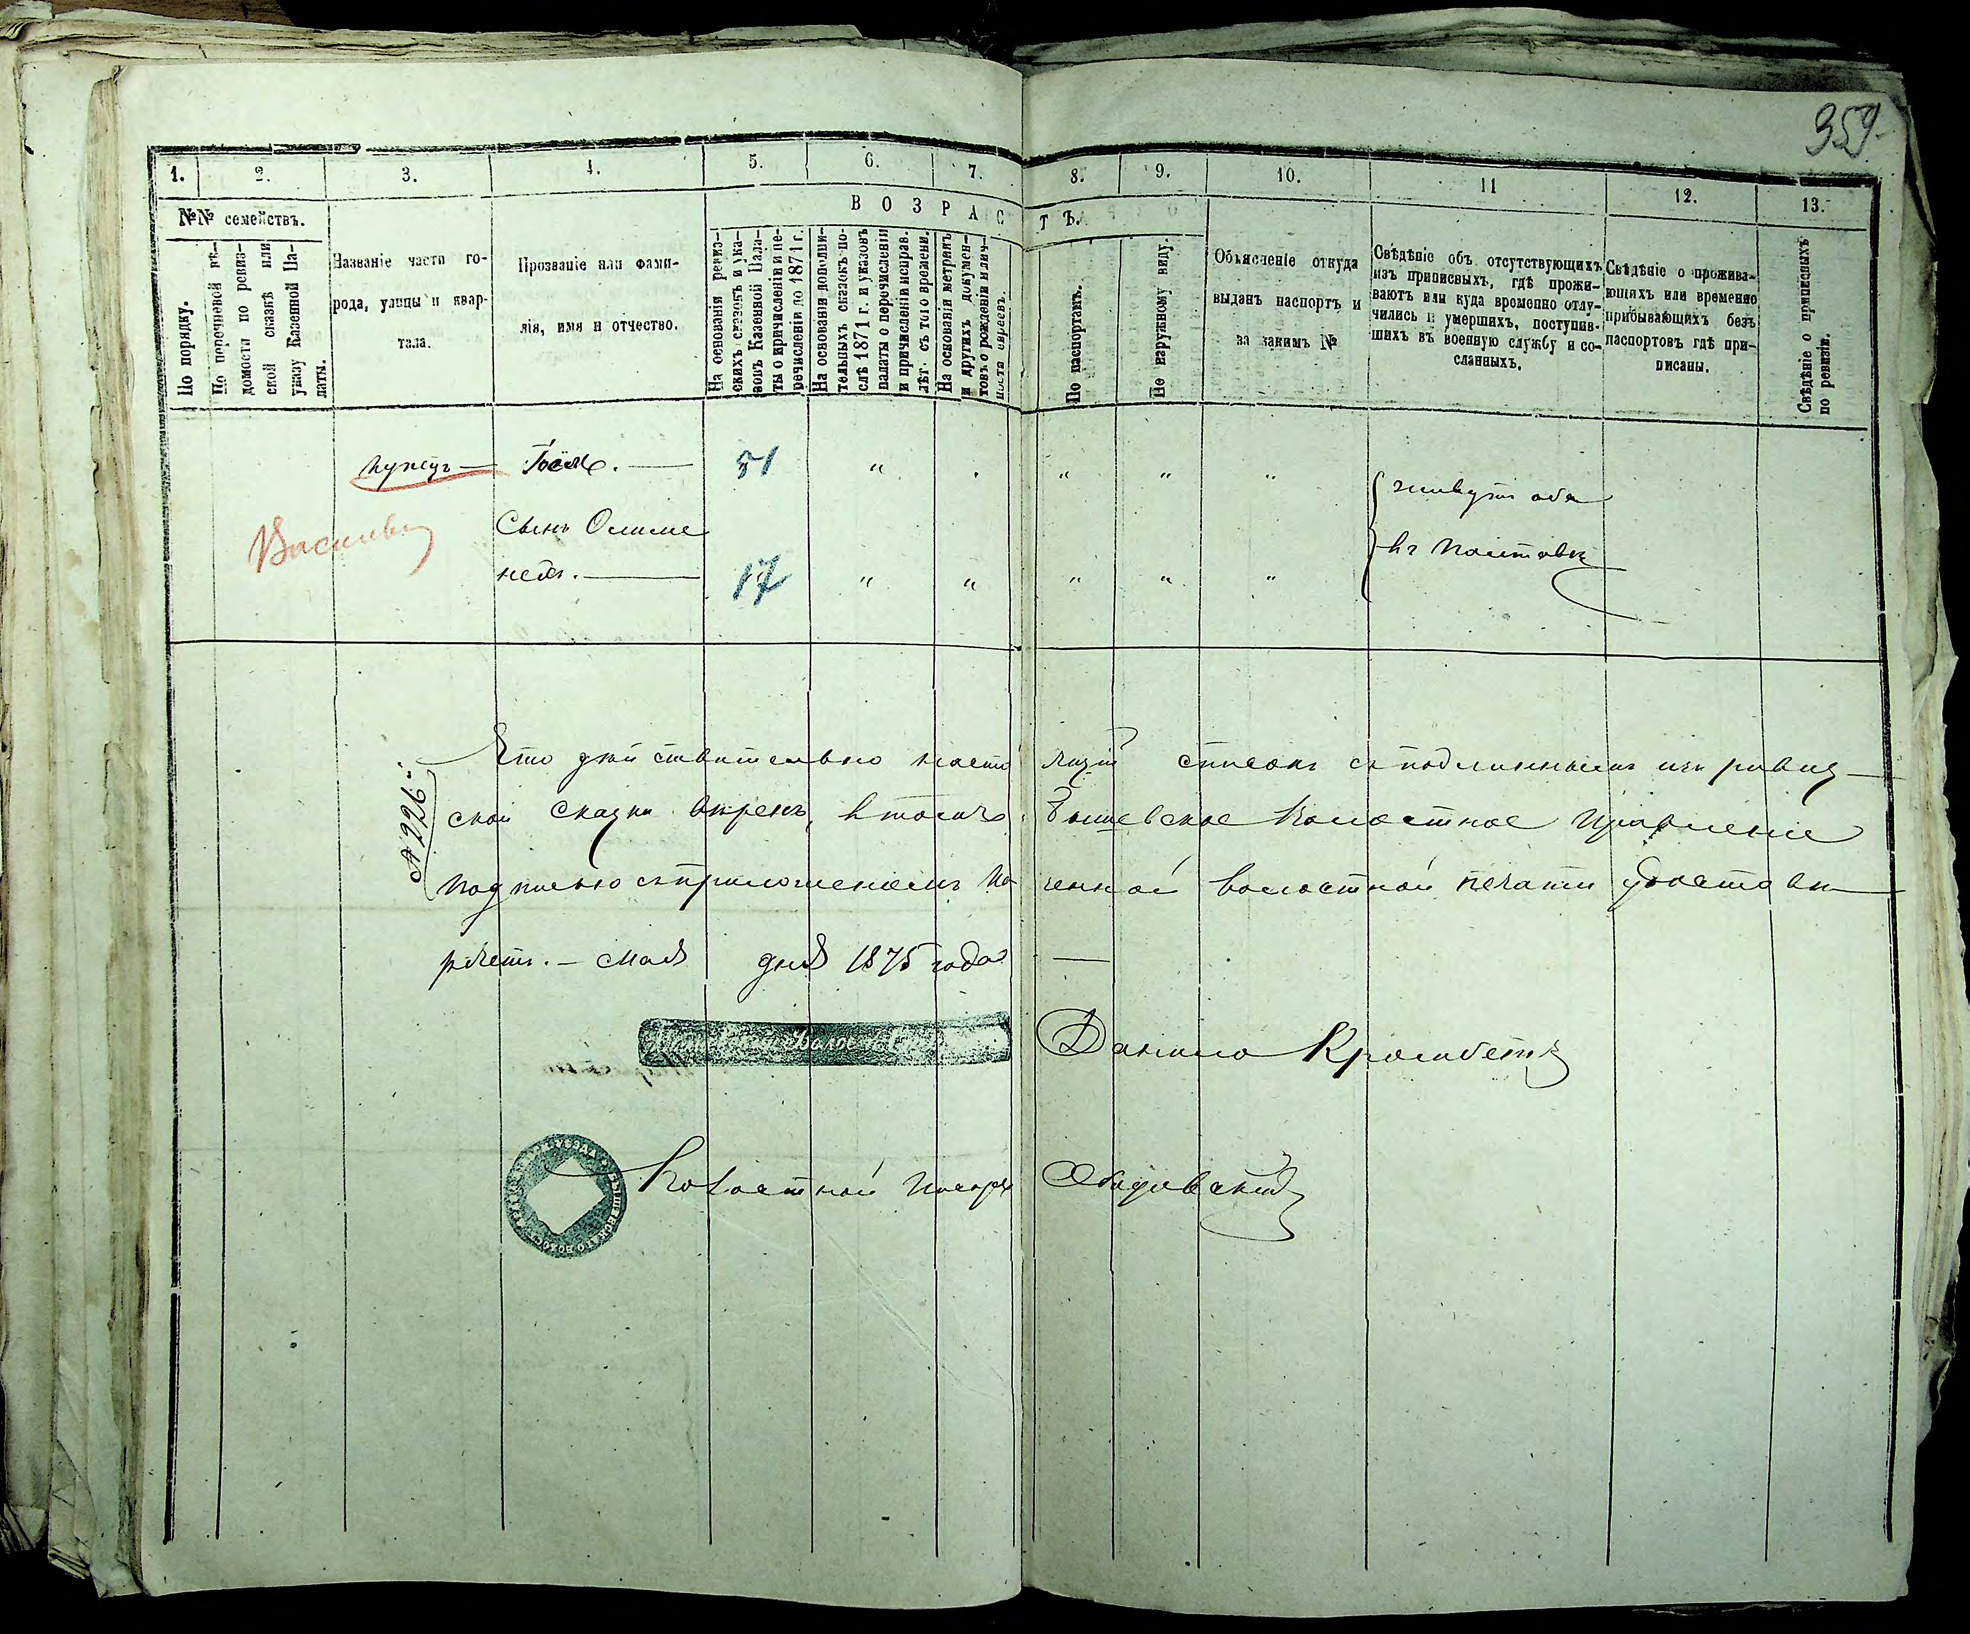 359
1. 2. 3. 4. 5. 6. 7. 8. 9. 10. 11 12. 13.
№№ семействъ.
В О З Р А С Т Ъ.
По порядку.
По перечневой вѣ-
домости по ревиз-
ской сказкѣ или
указу Казенной Па-
латы.
Названіе части го-
рода, улицы и квар-
тала.
Прозваніе или фами-
лія, имя и отчество.
На основаніи ревиз-
скихъ сказокъ и ука-
зовъ Казенной Пала-
ты о причисленіи и пе-
речисленіи до 1871 г.
На основаніи дополни-
тельныхъ сказокъ по-
слѣ 1871 г. и указовъ
палаты о перечисленіи
и причисленіи исправ.
лѣт. съ того времени.
На основаніи метрикъ
и другихъ докумен-
товъ о рожденіи и лич-
ности евреевъ.
По паспортамъ.
По наружному виду.
Объясненіе откуда
выданъ паспортъ и
за какимъ №
Свѣдѣніе объ отсутствующихъ
изъ приписныхъ, гдѣ прожи-
ваютъ или куда временно отлу-
чились и умершихъ, поступив-
шихъ въ военную службу и со-
сланныхъ.
Свѣдѣніе о прожива-
ющихъ или временно
прибывающихъ безъ
паспортовъ гдѣ при-
писаны.
Свѣдѣніе о приписныхъ
по ревизіи.
51 " . " " "
живутъ оба
Сынъ
въ
17 " " " " "
№ 226
Что дѣйствительно настоящій списокъ съ подлинными изъ ревиз
ской сказки вѣренъ, въ томъ Бышевское Волостное Правленіе
подписью съ приложеніемъ казенной волостной печати удостовѣ
ряетъ. — Мая дня 1875 года —
Данило
Волостной Писарь